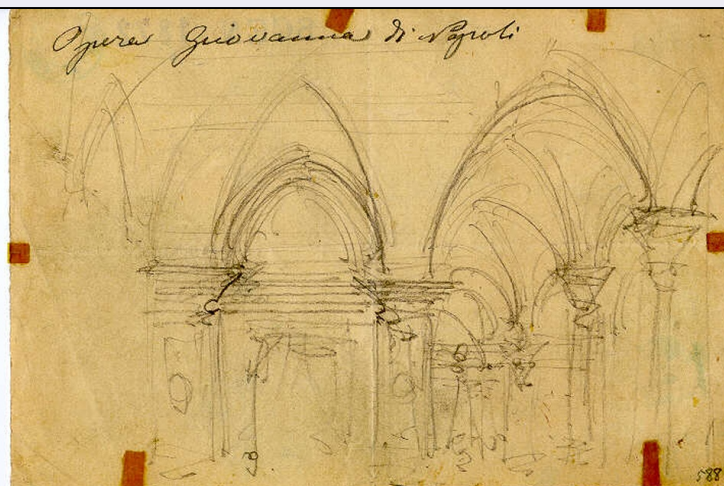 Opera Giovanna di Napoli
588